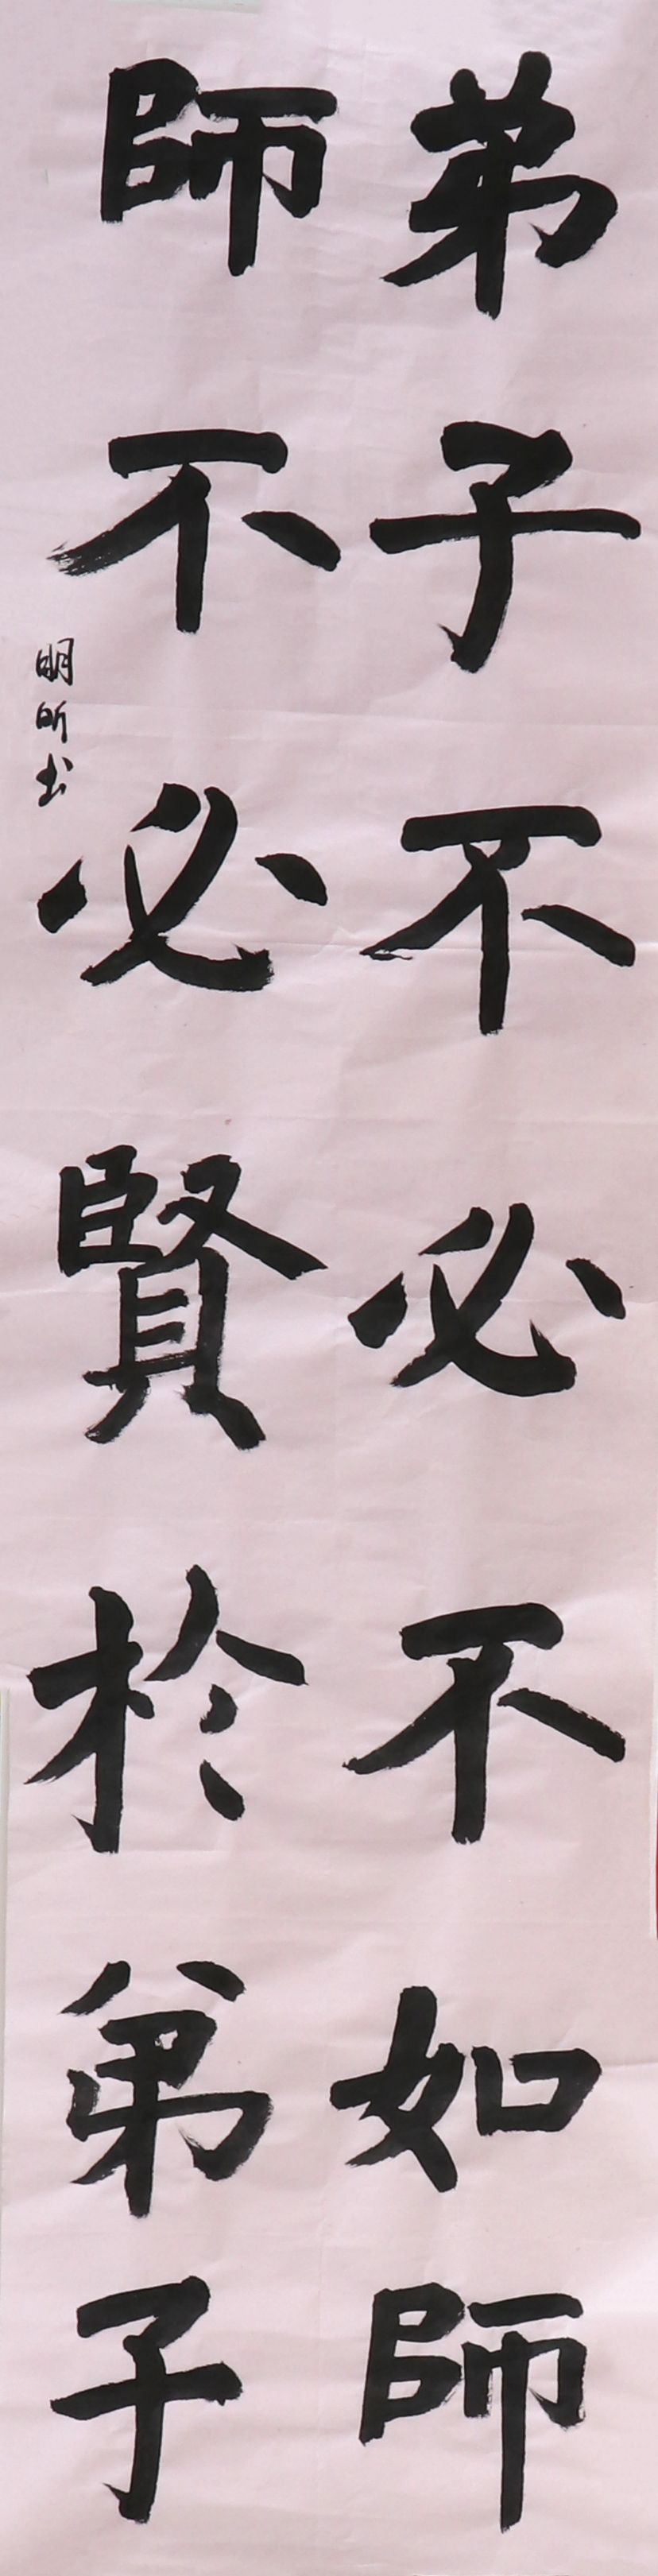 弟子不必不如師
師不必賢於弟子
明昕书